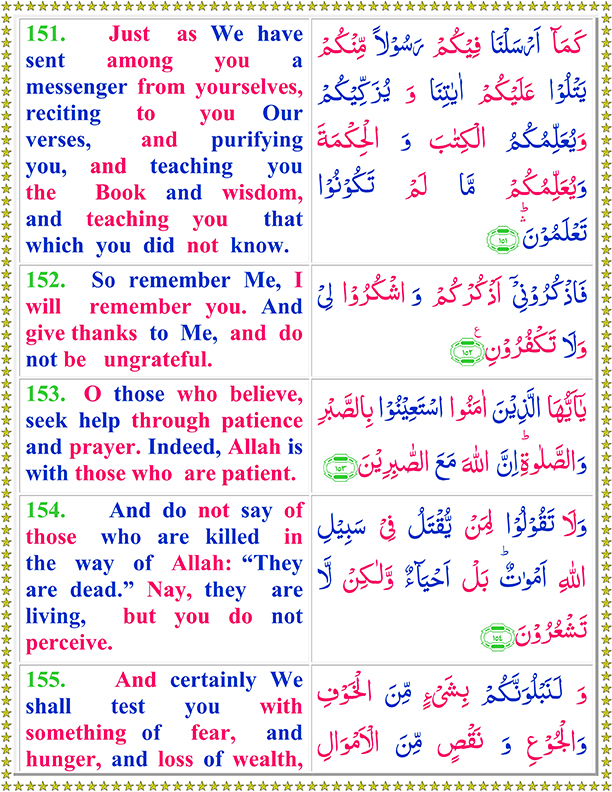 151. Just as We have
sent among you a
messenger from yourselves,
reciting to you Our
verses, and purifying
you, and teaching you
the Book and wisdom,
and teaching you that
which you did not know.
كَمَآ اَرْسَلْنَا فِيْكُمْ رَسُوْلًا مِّنْكُمْ
يَتْلُوْا عَلَيْكُمْ اٰيٰتِنَا وَ يُزَكِّيْكُمْ
وَيُعَلِّمُكُمُ الْكِتٰبَ وَ الْحِكْمَةَ
وَيُعَلِّمُكُمْ مَّا لَمْ تَكُوْنُوْا
تَعْلَمُوْنَ ؕۛ ۱۵۱
152. So remember Me, I
will remember you. And
give thanks to Me, and do
not be ungrateful.
فَاذْكُرُوْنِيْٓ اَذْكُرْكُمْ وَ اشْكُرُوْا لِيْ
وَلَا تَكْفُرُوْنِ ࣖ ۱۵۲
153. O those who believe,
seek help through patience
and prayer. Indeed, Allah is
with those who are patient.
يٰٓاَيُّهَا الَّذِيْنَ اٰمَنُوا اسْتَعِيْنُوْا بِالصَّبْرِ
وَالصَّلٰوةِ ؕ اِنَّ اللّٰهَ مَعَ الصّٰبِرِيْنَ ۱۵۳
154. And do not say of
those who are killed in
the way of Allah: “They
are dead.” Nay, they are
living, but you do not
perceive.
وَلَا تَقُوْلُوْا لِمَنْ يُّقْتَلُ فِيْ سَبِيْلِ
اللّٰهِ اَمْوَاتٌ ؕ بَلْ اَحْيَآءٌ وَّلٰكِنْ لَّا
تَشْعُرُوْنَ ۱۵٤
155. And certainly We
shall test you with
something of fear, and
hunger, and loss of wealth,
وَ لَنَبْلُوَنَّكُمْ بِشَيْءٍ مِّنَ الْخَوْفِ
وَالْجُوْعِ وَ نَقْصٍ مِّنَ الْاَمْوَالِ